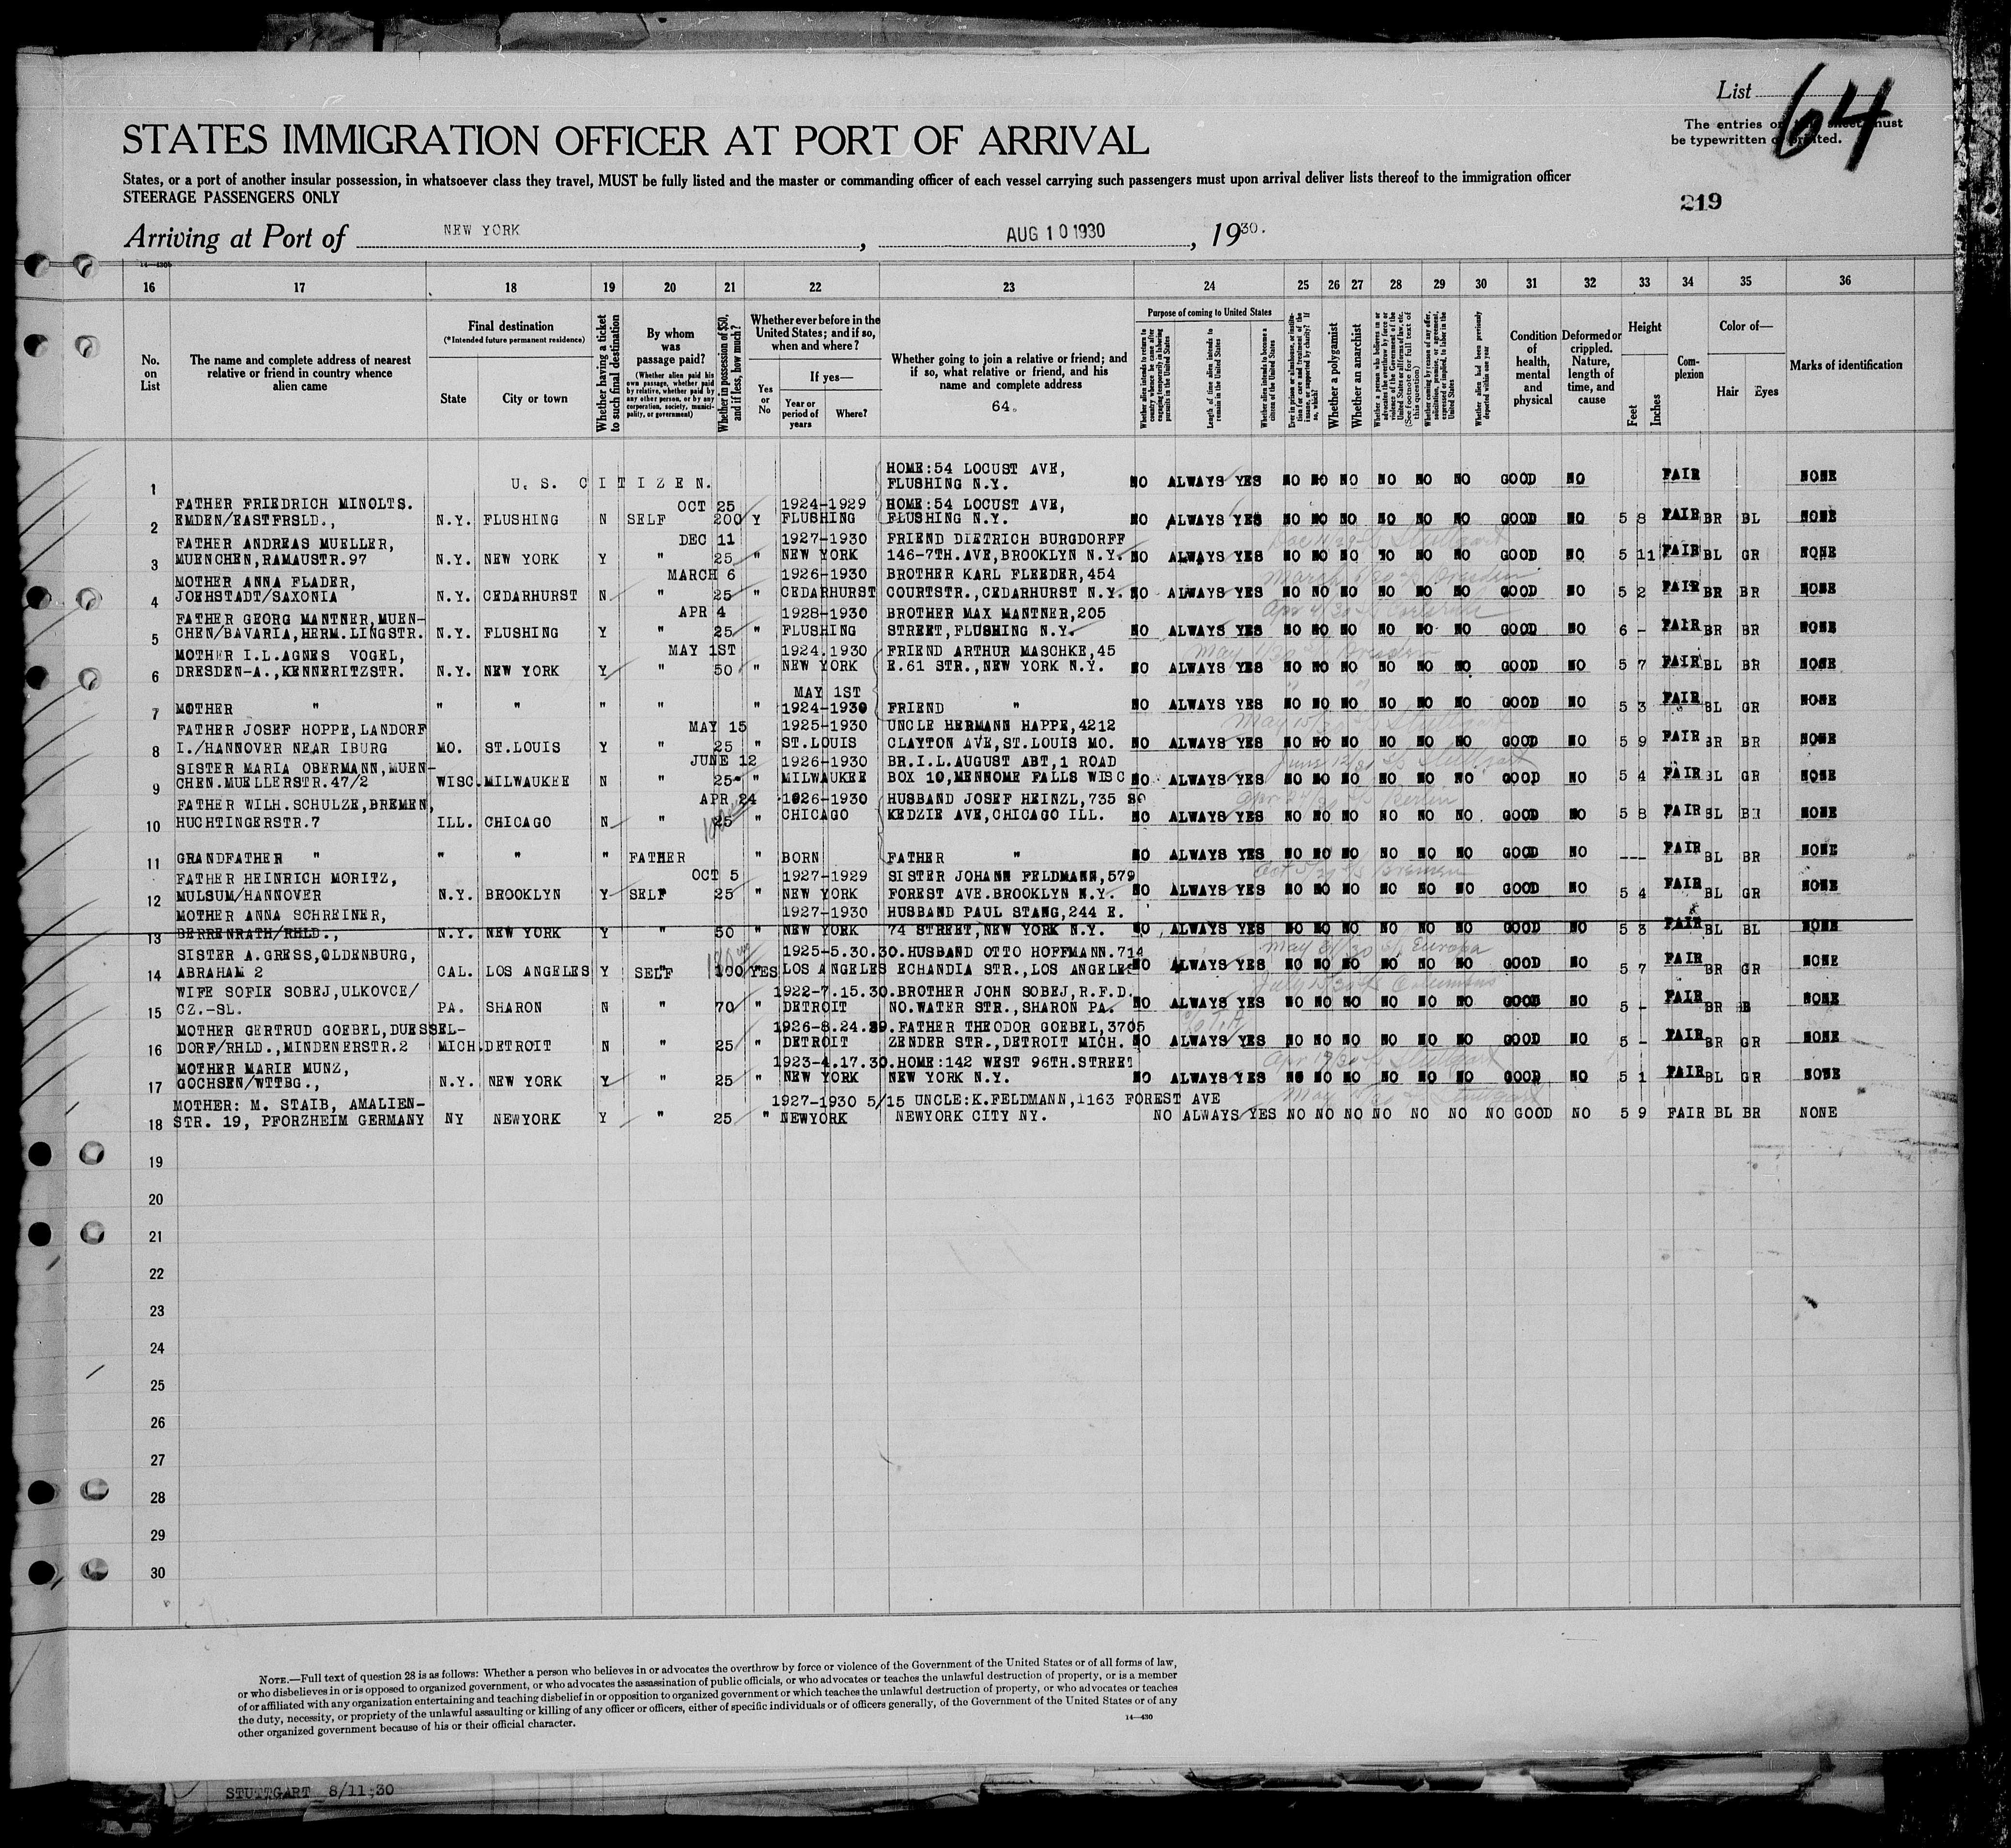 List 64
The entries on this sheet must
be typewritten or printed.
STATES IMMIGRATION OFFICER AT PORT OF ARRIVAL
States, or a port of another insular possession, in whatsoever class they travel, MUST be fully listed and the master or commanding officer of each vessel carrying such passengers must upon arrival deliver lists thereof to the immigration officer
STEERAGE PASSENGERS ONLY
219
Arriving at Port of NEW YORK , AUG 10 1930 , 1930.
16 17 18 19 20 21 22 23 24 25 26 27 28 29 30 31 32 33 34 35 36
No. on List
The name and complete address of nearest relative or friend in country whence alien came
Final destination
(*Intended future permanent residence)
State City or town
Whether having a ticket to such final destination
By whom was passage paid?
(Whether alien paid his own passage, whether paid by relative, whether paid by any other person, or by any corporation, society, municipality, or government)
Whether in possession of $50, and if less, how much?
Whether ever before in the United States; and if so, when and where?
Yes or No
If yes—
Year or period of years Where?
Whether going to join a relative or friend; and if so, what relative or friend, and his name and complete address
64.
Purpose of coming to United States
Whether alien intends to return to country whence he came after engaging temporarily in laboring pursuits in the United States
Length of time alien intends to remain in the United States
Whether alien intends to become a citizen of the United States
Ever in prison or almshouse, or institution for care and treatment of the insane, or supported by charity? If so, which?
Whether a polygamist
Whether an anarchist
Whether a person who believes in or advocates the overthrow by force or violence of the Government of the United States or all forms of law, etc. (See footnote for full text of this question)
Whether coming by reason of any offer, solicitation, promise, or agreement, expressed or implied, to labor in the United States
Whether alien had been previously deported within one year
Condition of health, mental and physical
Deformed or crippled. Nature, length of time, and cause
Height
Feet Inches
Complexion
Color of—
Hair Eyes
Marks of identification
HOME:54 LOCUST AVE,
1 U. S. CITIZEN. FLUSHING N.Y. NO ALWAYS YES NO NO NO NO NO NO GOOD NO FAIR NONE
FATHER FRIEDRICH MINOLTS. OCT 25 1924-1929 HOME:54 LOCUST AVE,
2 EMDEN/EASTFRSLD., N.Y. FLUSHING N SELF 200 Y FLUSHING FLUSHING N.Y. NO ALWAYS YES NO NO NO NO NO NO GOOD NO 5 8 FAIR BR BL NONE
FATHER ANDREAS MUELLER, DEC 11 1927-1930 FRIEND DIETRICH BURGDORFF Dec 11/29 Stuttgart
3 MUENCHEN,RAMAUSTR.97 N.Y. NEW YORK Y " 25 " NEW YORK 146-7TH.AVE,BROOKLYN N.Y. NO ALWAYS YES NO NO NO NO NO NO GOOD NO 5 11 FAIR BL GR NONE
MOTHER ANNA FLADER, MARCH 6 1926-1930 BROTHER KARL FLEEDER,454 March 6/30 Dresden
4 JOEHSTADT/SAXONIA N.Y. CEDARHURST N " 25 " CEDARHURST COURTSTR.,CEDARHURST N.Y. NO ALWAYS YES NO NO NO NO NO NO GOOD NO 5 2 FAIR BR BR NONE
FATHER GEORG MANTNER,MUEN- APR 4 1928-1930 BROTHER MAX MANTNER,205 Apr 4/30
5 CHEN/BAVARIA,HERM.LINGSTR. N.Y. FLUSHING Y " 25 " FLUSHING STREET,FLUSHING N.Y. NO ALWAYS YES NO NO NO NO NO NO GOOD NO 6 - FAIR BR BR NONE
MOTHER I.L.AGNES VOGEL, MAY 1ST 1924.1930 FRIEND ARTHUR MASCHKE,45 May 1/30 Dresden
6 DRESDEN-A.,KENNERITZSTR. N.Y. NEW YORK Y " 50 " NEW YORK E.61 STR.,NEW YORK N.Y. NO ALWAYS YES NO NO NO NO NO NO GOOD NO 5 7 FAIR BL BR NONE
MAY 1ST " "
7 MOTHER " " " " " " 1924-1930 FRIEND " NO ALWAYS YES NO NO NO NO NO NO GOOD NO 5 3 FAIR BL GR NONE
FATHER JOSEF HOPPE,LANDORF MAY 15 1925-1930 UNCLE HERMANN HAPPE,4212 May 15/30 Stuttgart
8 I./HANNOVER NEAR IBURG MO. ST.LOUIS Y " 25 " ST.LOUIS CLAYTON AVE,ST.LOUIS MO. NO ALWAYS YES NO NO NO NO NO NO GOOD NO 5 9 FAIR BR BR NONE
SISTER MARIA OBERMANN,MUEN- JUNE 12 1926-1930 BR.I.L.AUGUST ABT,1 ROAD June 12/30 Stuttgart
9 CHEN.MUELLERSTR.47/2 WISC.MILWAUKEE N " 25 " MILWAUKEE BOX 10,MENNOME FALLS WISC NO ALWAYS YES NO NO NO NO NO NO GOOD NO 5 4 FAIR BL GR NONE
FATHER WILH.SCHULZE,BREMEN, APR 24 1926-1930 HUSBAND JOSEF HEINZL,735 SO Apr 24/30 Berlin
10 HUCHTINGERSTR.7 ILL. CHICAGO N " 25 " CHICAGO KEDZIE AVE,CHICAGO ILL. NO ALWAYS YES NO NO NO NO NO NO GOOD NO 5 8 FAIR BL BR NONE
11 GRANDFATHER " " " " FATHER " BORN FATHER " NO ALWAYS YES NO NO NO NO NO NO GOOD NO --- FAIR BL BR NONE
FATHER HEINRICH MORITZ, OCT 5 1927-1929 SISTER JOHANN FELDMANN,579 Oct 5/29 Bremen
12 MULSUM/HANNOVER N.Y. BROOKLYN Y SELF 25 " NEW YORK FOREST AVE.BROOKLYN N.Y. NO ALWAYS YES NO NO NO NO NO NO GOOD NO 5 4 FAIR BL GR NONE
MOTHER ANNA SCHREINER, 1927-1930 HUSBAND PAUL STANG,244 E.
13 BERRENRATH/RHLD., N.Y. NEW YORK Y " 50 " NEW YORK 74 STREET,NEW YORK N.Y. NO ALWAYS YES NO NO NO NO NO NO GOOD NO 5 3 FAIR BL BL NONE
SISTER A.GRESS,OLDENBURG, 1925-5.30.30.HUSBAND OTTO HOFFMANN.714 Europa
14 ABRAHAM 2 CAL. LOS ANGELES Y SELF 100 YES LOS ANGELES ECHANDIA STR.,LOS ANGELES NO ALWAYS YES NO NO NO NO NO NO GOOD NO 5 7 FAIR BR GR NONE
WIFE SOFIE SOBEJ,ULKOVCE/ 1922-7.15.30.BROTHER JOHN SOBEJ,R.F.D. July 15/30 Columbus
15 CZ.-SL. PA. SHARON N " 70 " DETROIT NO.WATER STR.,SHARON PA. NO ALWAYS YES NO NO NO NO NO NO GOOD NO 5 - FAIR BR NONE
MOTHER GERTRUD GOEBEL,DUESSEL- 1926-8.24.29.FATHER THEODOR GOEBEL,3705
16 DORF/RHLD.,MINDENERSTR.2 MICH.DETROIT N " 25 " DETROIT ZENDER STR.,DETROIT MICH. NO ALWAYS YES NO NO NO NO NO NO GOOD NO 5 - FAIR BR GR NONE
MOTHER MARIE MUNZ, 1923-4.17.30.HOME:142 WEST 96TH.STREET Apr 17/30 Stuttgart
17 GOCHSEN/WTTBG., N.Y. NEW YORK Y " 25 " NEW YORK NEW YORK N.Y. NO ALWAYS YES NO NO NO NO NO NO GOOD NO 5 1 FAIR BL GR NONE
MOTHER: M. STAIB, AMALIEN- 1927-1930 5/15 UNCLE:K.FELDMANN,1163 FOREST AVE May 15/30 Stuttgart
18 STR. 19, PFORZHEIM GERMANY NY NEWYORK Y " 25 " NEWYORK NEWYORK CITY NY. NO ALWAYS YES NO NO NO NO NO NO NO GOOD NO 5 9 FAIR BL BR NONE
19
20
21
22
23
24
25
26
27
28
29
30
NOTE.—Full text of question 28 is as follows: Whether a person who believes in or advocates the overthrow by force or violence of the Government of the United States or of all forms of law,
or who disbelieves in or is opposed to organized government, or who advocates the assassination of public officials, or who advocates or teaches the unlawful destruction of property, or is a member
of or affiliated with any organization entertaining and teaching disbelief in or opposition to organized government or which teaches the unlawful destruction of property, or who advocates or teaches
the duty, necessity, or propriety of the unlawful assaulting or killing of any officer or officers, either of specific individuals or of officers generally, of the Government of the United States or of any
other organized government because of his or their official character.
14—430
STUTTGART 8/11-30